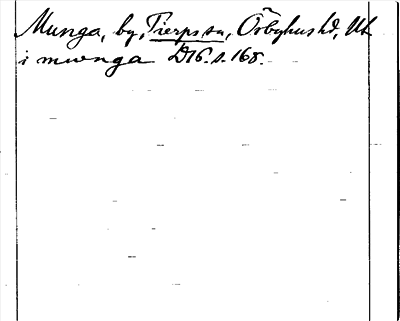 Munga, by, Tierps sn, Örbyhus hd, Upl.
i mwnga D16. s. 168.